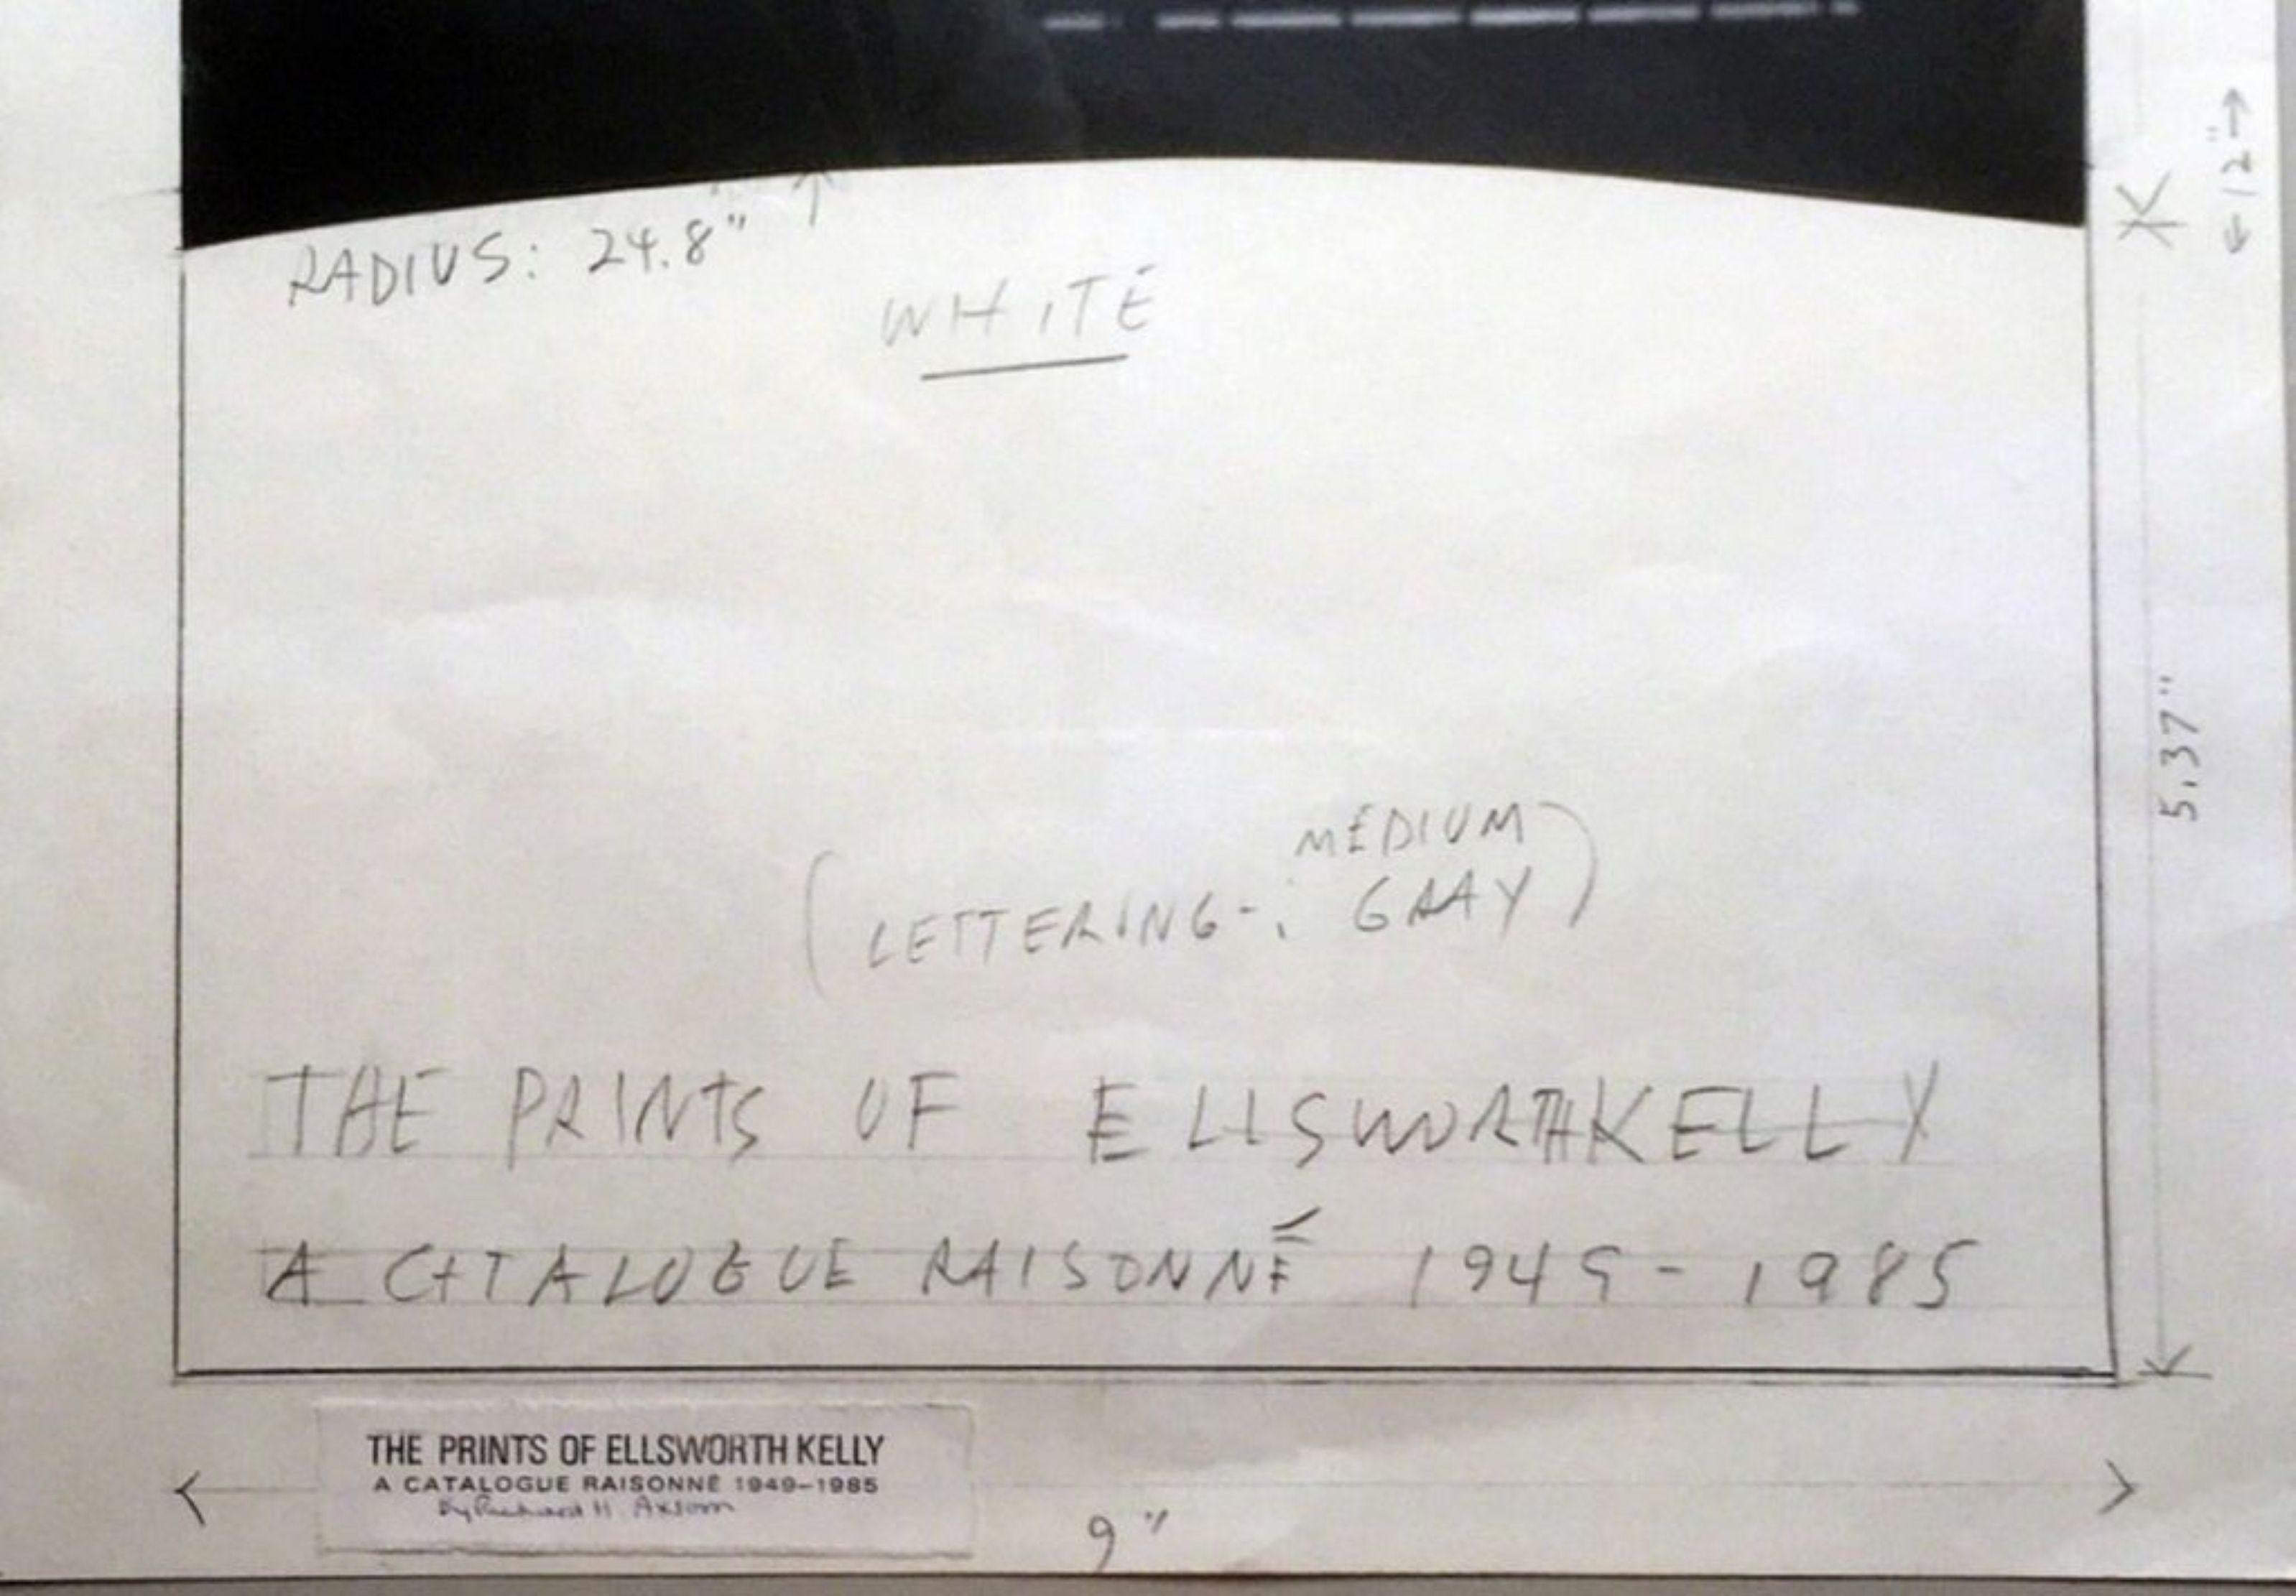 RADIUS: 24.8"
WHITE
←12"→
5.37"
MEDIUM
(LETTERING-: GRAY)
THE PRINTS OF ELLSWORTH KELLY
A CATALOGUE RAISONNÉ 1949-1985
THE PRINTS OF ELLSWORTH KELLY
A CATALOGUE RAISONNÉ 1949–1985
by Richard H. Axsom
9"